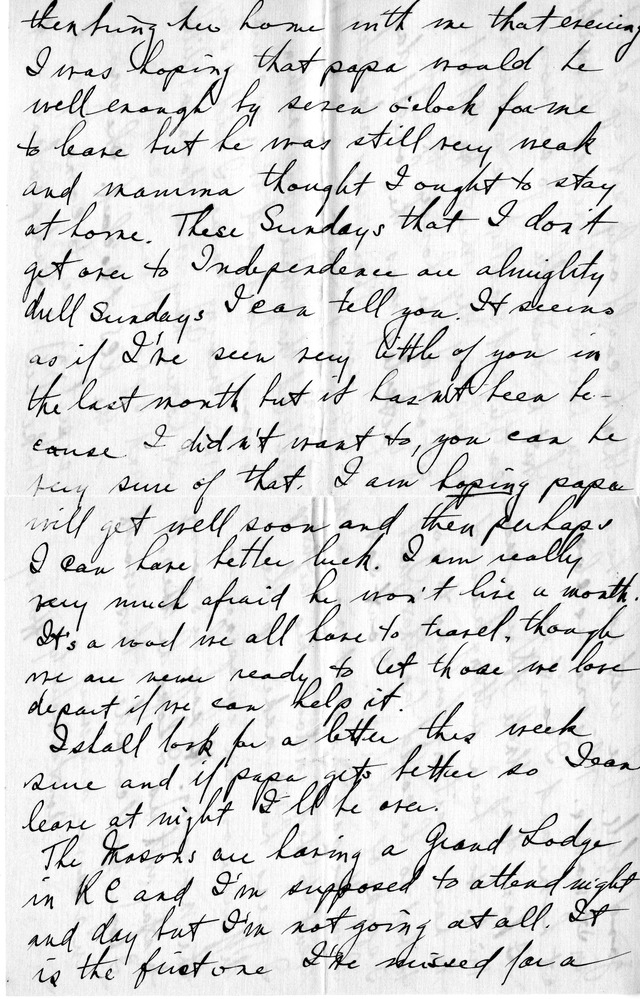 then bring her home with me that evening
I was hoping that papa would be
well enough by seven o'clock for me
to leave but he was still very weak
and mamma thought I ought to stay
at home. These Sundays that I don't
get over to Independence are almighty
dull Sundays I can tell you. It seems
as if I've seen very little of you in
the last month but it hasn't been be-
cause I didn't want to, you can be
very sure of that. I am hoping papa
will get well soon and then perhaps
I can have better luck. I am really
very much afraid he won't live a month.
It's a road we all have to travel, though
we are never ready to let those we love
depart if we can help it.
I shall look for a letter this week
sure and if papa gets better so I can
leave at night I'll be over.
The Masons are having a Grand Lodge
in KC and I'm supposed to attend night
and day but I'm not going at all. It
is the first one I've missed for a